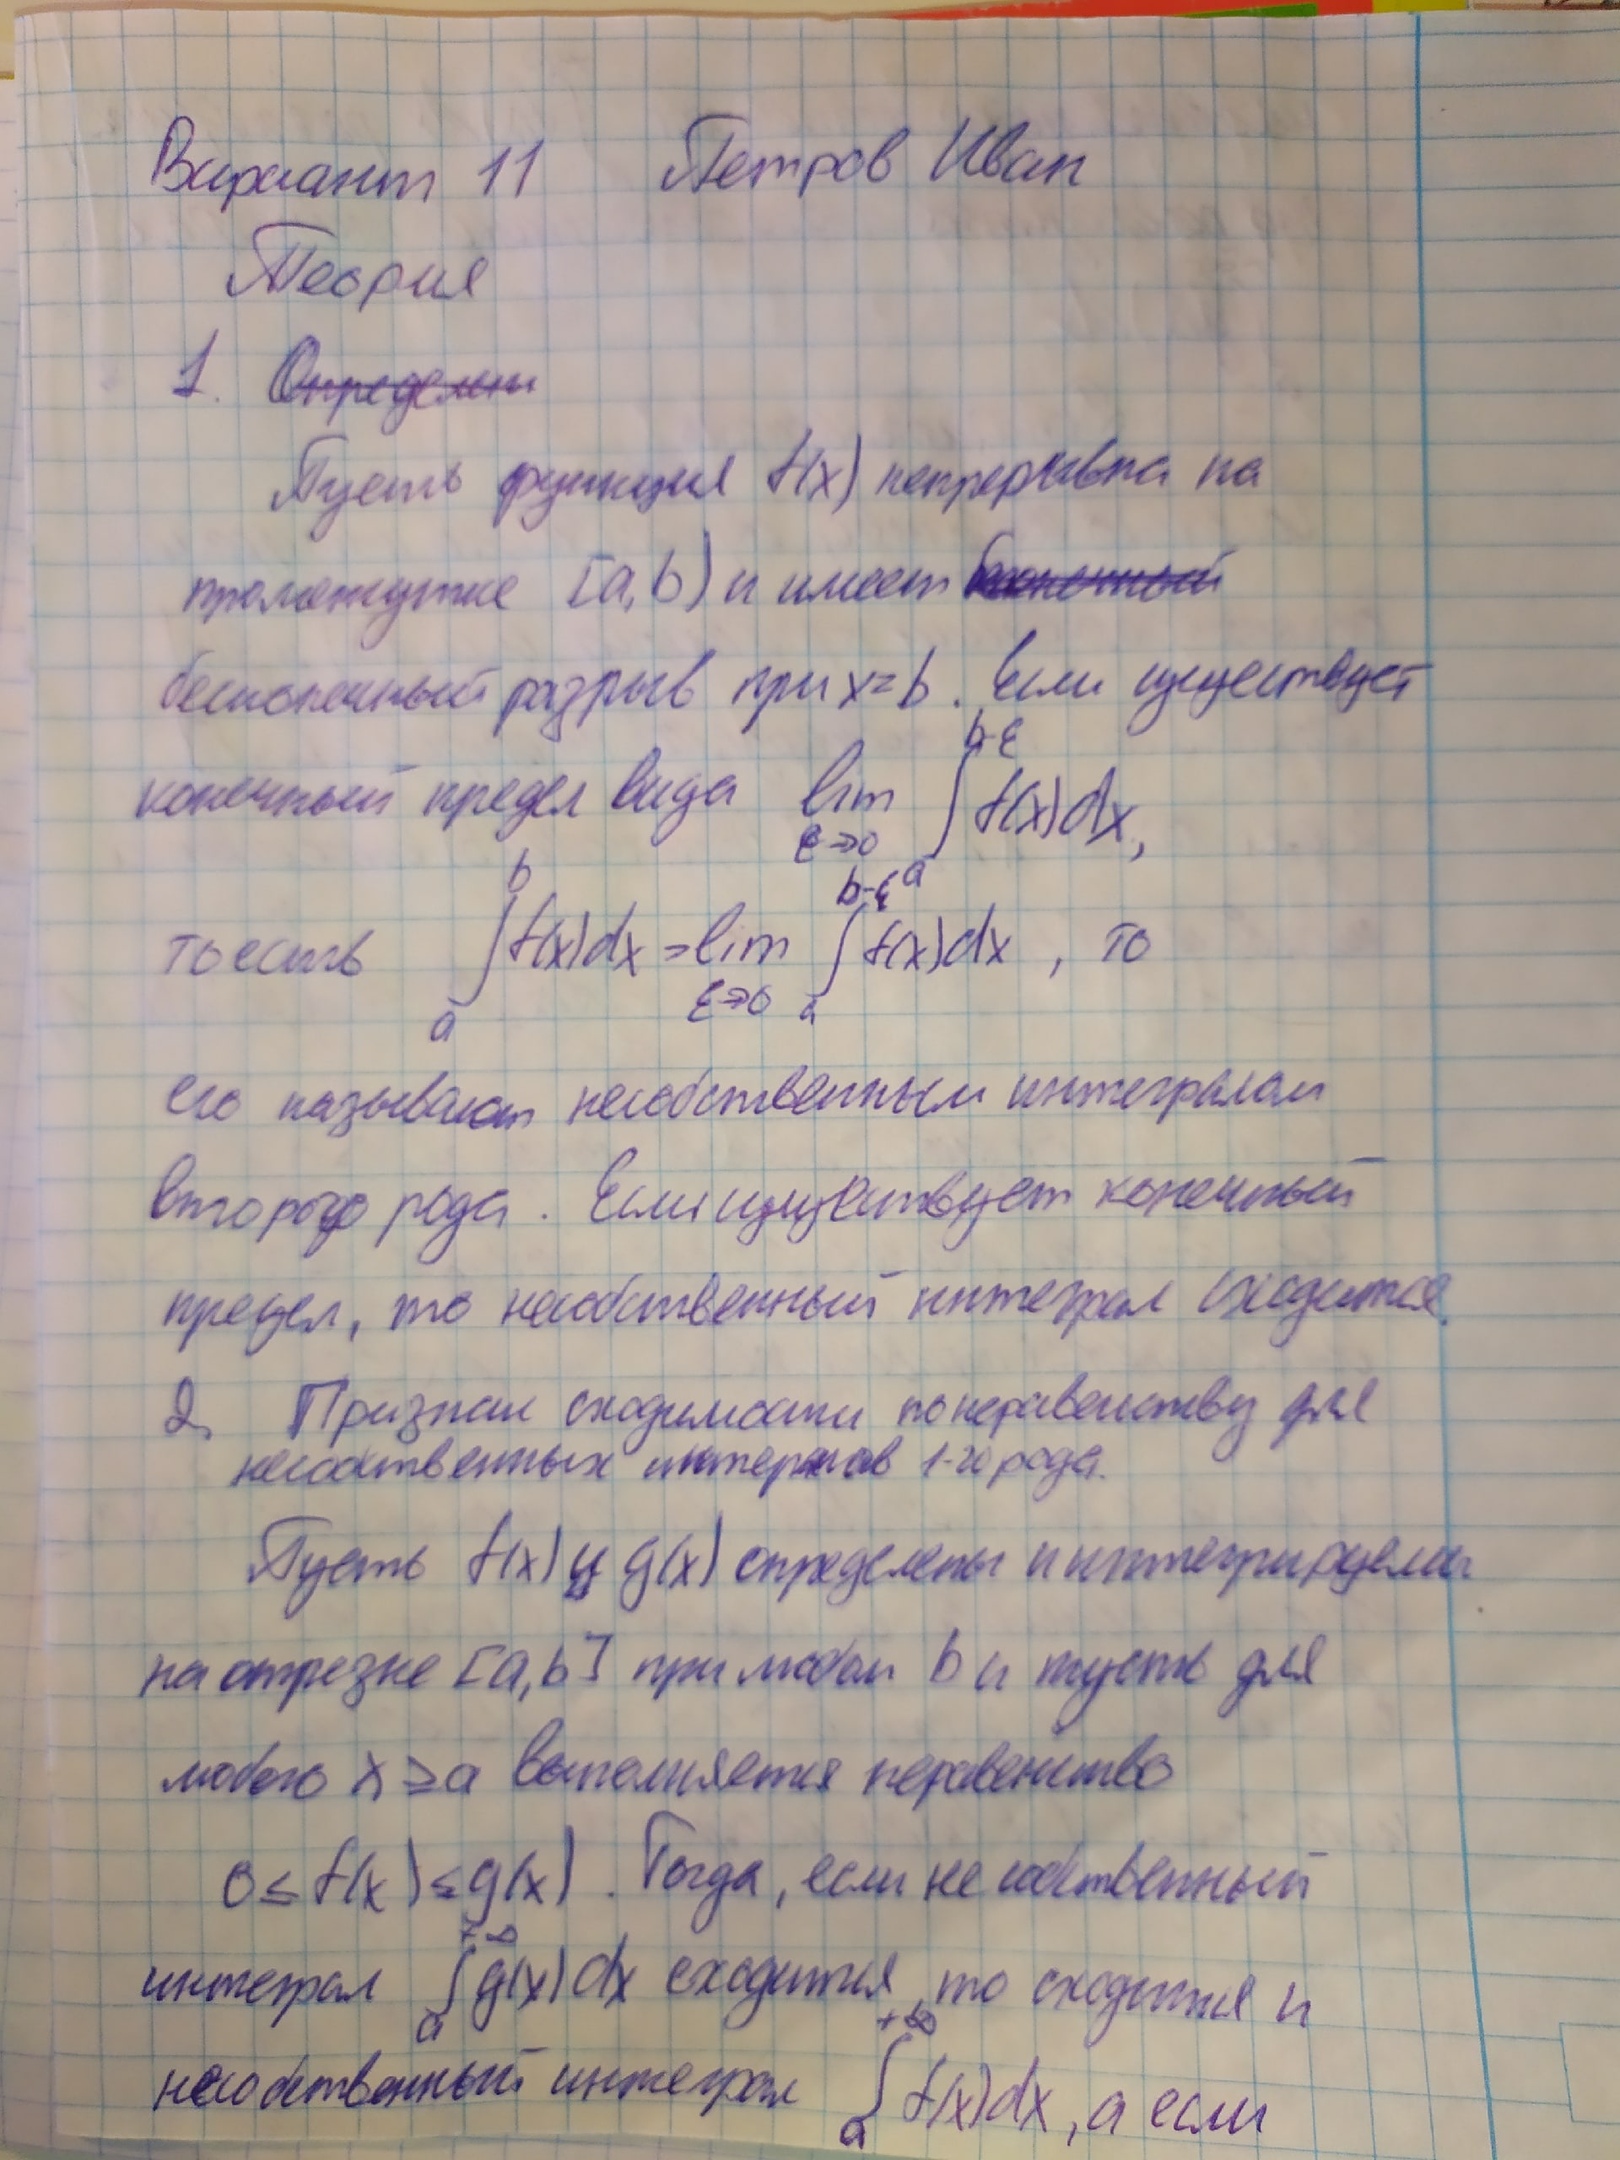 Вариант 11 Петров Иван
Теория
1. Определени
Пусть функция f(x) непрерывна на
промежутке [a,b) и имеет бесконечный
бесконечный разрыв при x=b. Если существует
конечный предел вида lim ε→0 ∫ₐᵇ⁻ᵋ f(x)dx,
то есть ∫ₐᵇ f(x)dx = lim ε→0 ∫ₐᵇ⁻ᵋ f(x)dx, то
его называют несобственным интегралом
второго рода. Если существует конечный
предел, то несобственный интеграл сходится.
2. Признак сходимости по неравенству для
несобственных интегралов 1-го рода.
Пусть f(x) и g(x) определены и интегрируемы
на отрезке [a,b] при любом b и пусть для
любого x ≥ a выполняется неравенство
0 ≤ f(x) ≤ g(x). Тогда, если несобственный
интеграл ∫ₐ⁺∞ g(x)dx сходится, то сходится и
несобственный интеграл ∫ₐ⁺∞ f(x)dx, а если